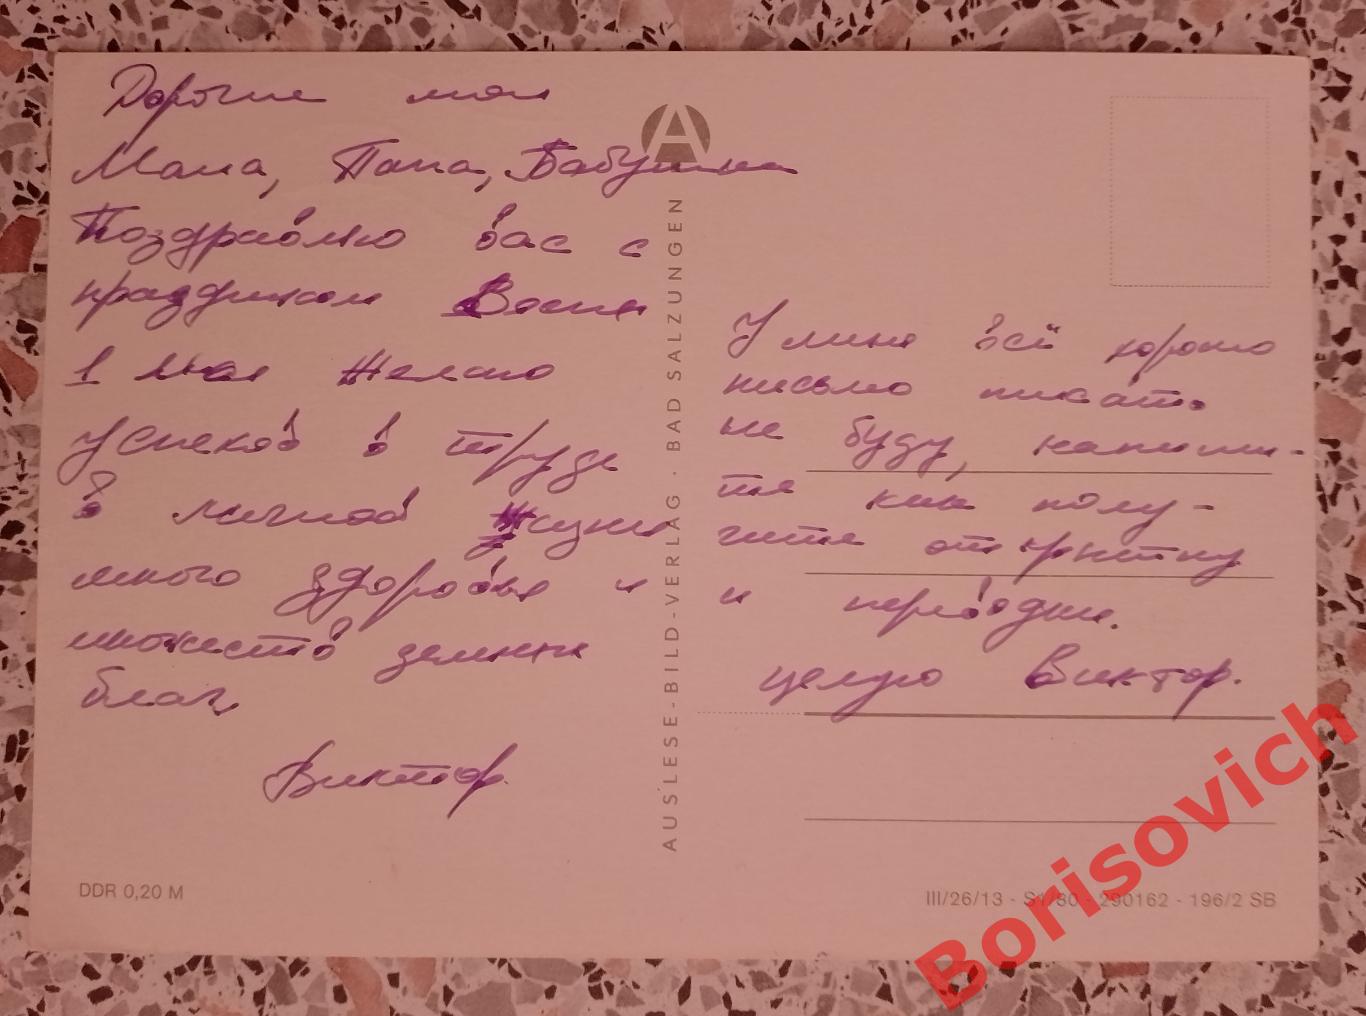 Дорогие мои
Мама, Папа, Бабушка
Поздравляю вас с
праздником Весны
1 мая Желаю
успехов в труде
в личной жизни
много здоровья и
множество земных
благ.
Виктор.
A
AUSLESE-BILD-VERLAG · BAD SALZUNGEN
У меня всё хорошо
письмо писать
не буду, напиши-
те как полу-
чите открытку
и переводы.
целую Виктор.
DDR 0,20 M
III/26/13 - S1/80 - 290162 - 196/2 SB
Borisovich